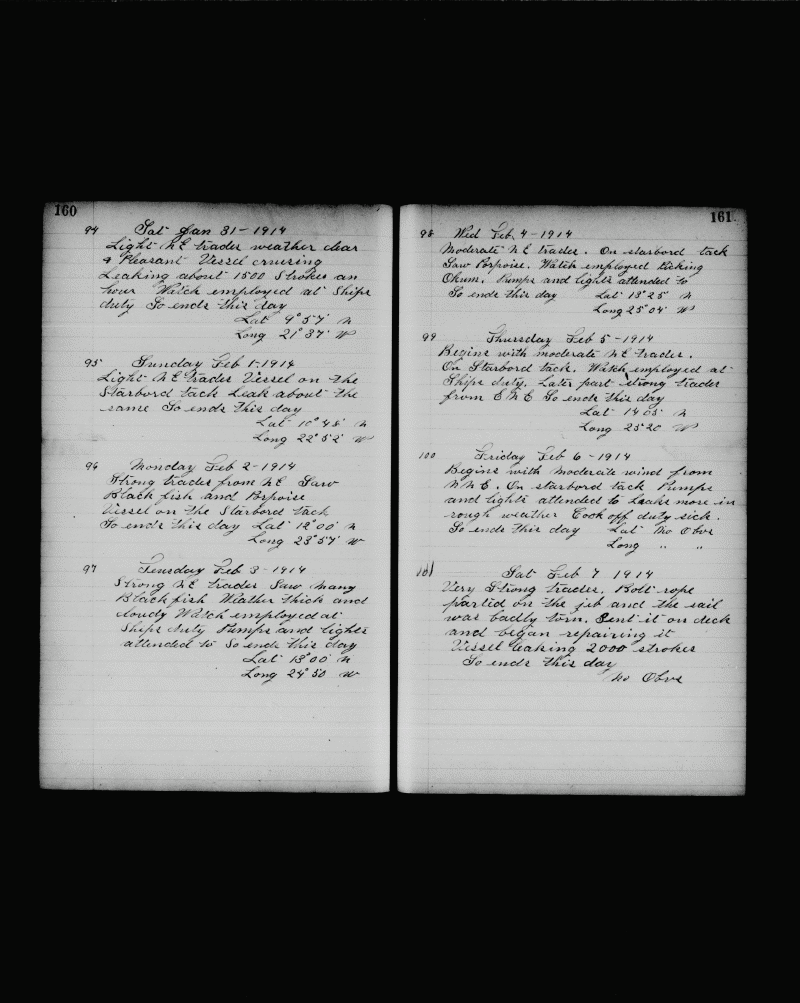 160
94 Sat Jan 31 - 1914
Light NE trades weather clear
& Pleasant Vessel cruising
Leaking about 1500 Strokes an
hour Watch employed at Ships
duty So ends this day
Lat 9° 57' N
Long 21° 37' W
95 Sunday Feb 1 - 1914
Light NE trades Vessel on the
Starbord tack Leak about the
same So ends this day
Lat 10° 48' N
Long 22° 52' W
96 Monday Feb 2 - 1914
Strong trades from NE Saw
Black fish and Porpoise
Vessel on the Starbord tack
So ends this day Lat 12° 00' N
Long 23° 57' W
97 Teusday Feb 3 - 1914
Strong NE trades Saw many
Blackfish Weather thick and
cloudy Watch employed at
Ships duty Pumps and lights
attended to So ends this day
Lat 13° 00' N
Long 24° 50' W
161
98 Wed Feb 4 - 1914
Moderate NE trades. On starbord tack
Saw Porpoise. Watch employed Picking
Okum. Pumps and lights attended to
So ends this day Lat 13° 25' N
Long 25° 04' W
99 Thursday Feb 5 - 1914
Begins with moderate NE trades.
On Starbord tack. Watch employed at
Ships duty. Later part strong trades
from ENE So ends this day
Lat 14 05' N
Long 25° 20' W
100 Friday Feb 6 - 1914
Begins with moderate wind from
NNE. On starbord tack Pumps
and lights attended to Leaks more in
rough weather Cook off duty sick.
So ends this day Lat No Obvs
Long " "
101 Sat Feb 7 1914
Very Strong trades. Bolt rope
parted on the jib and the sail
was badly torn. Sent it on deck
and began repairing it
Vessel leaking 2000 strokes
So ends this day
No Obvs